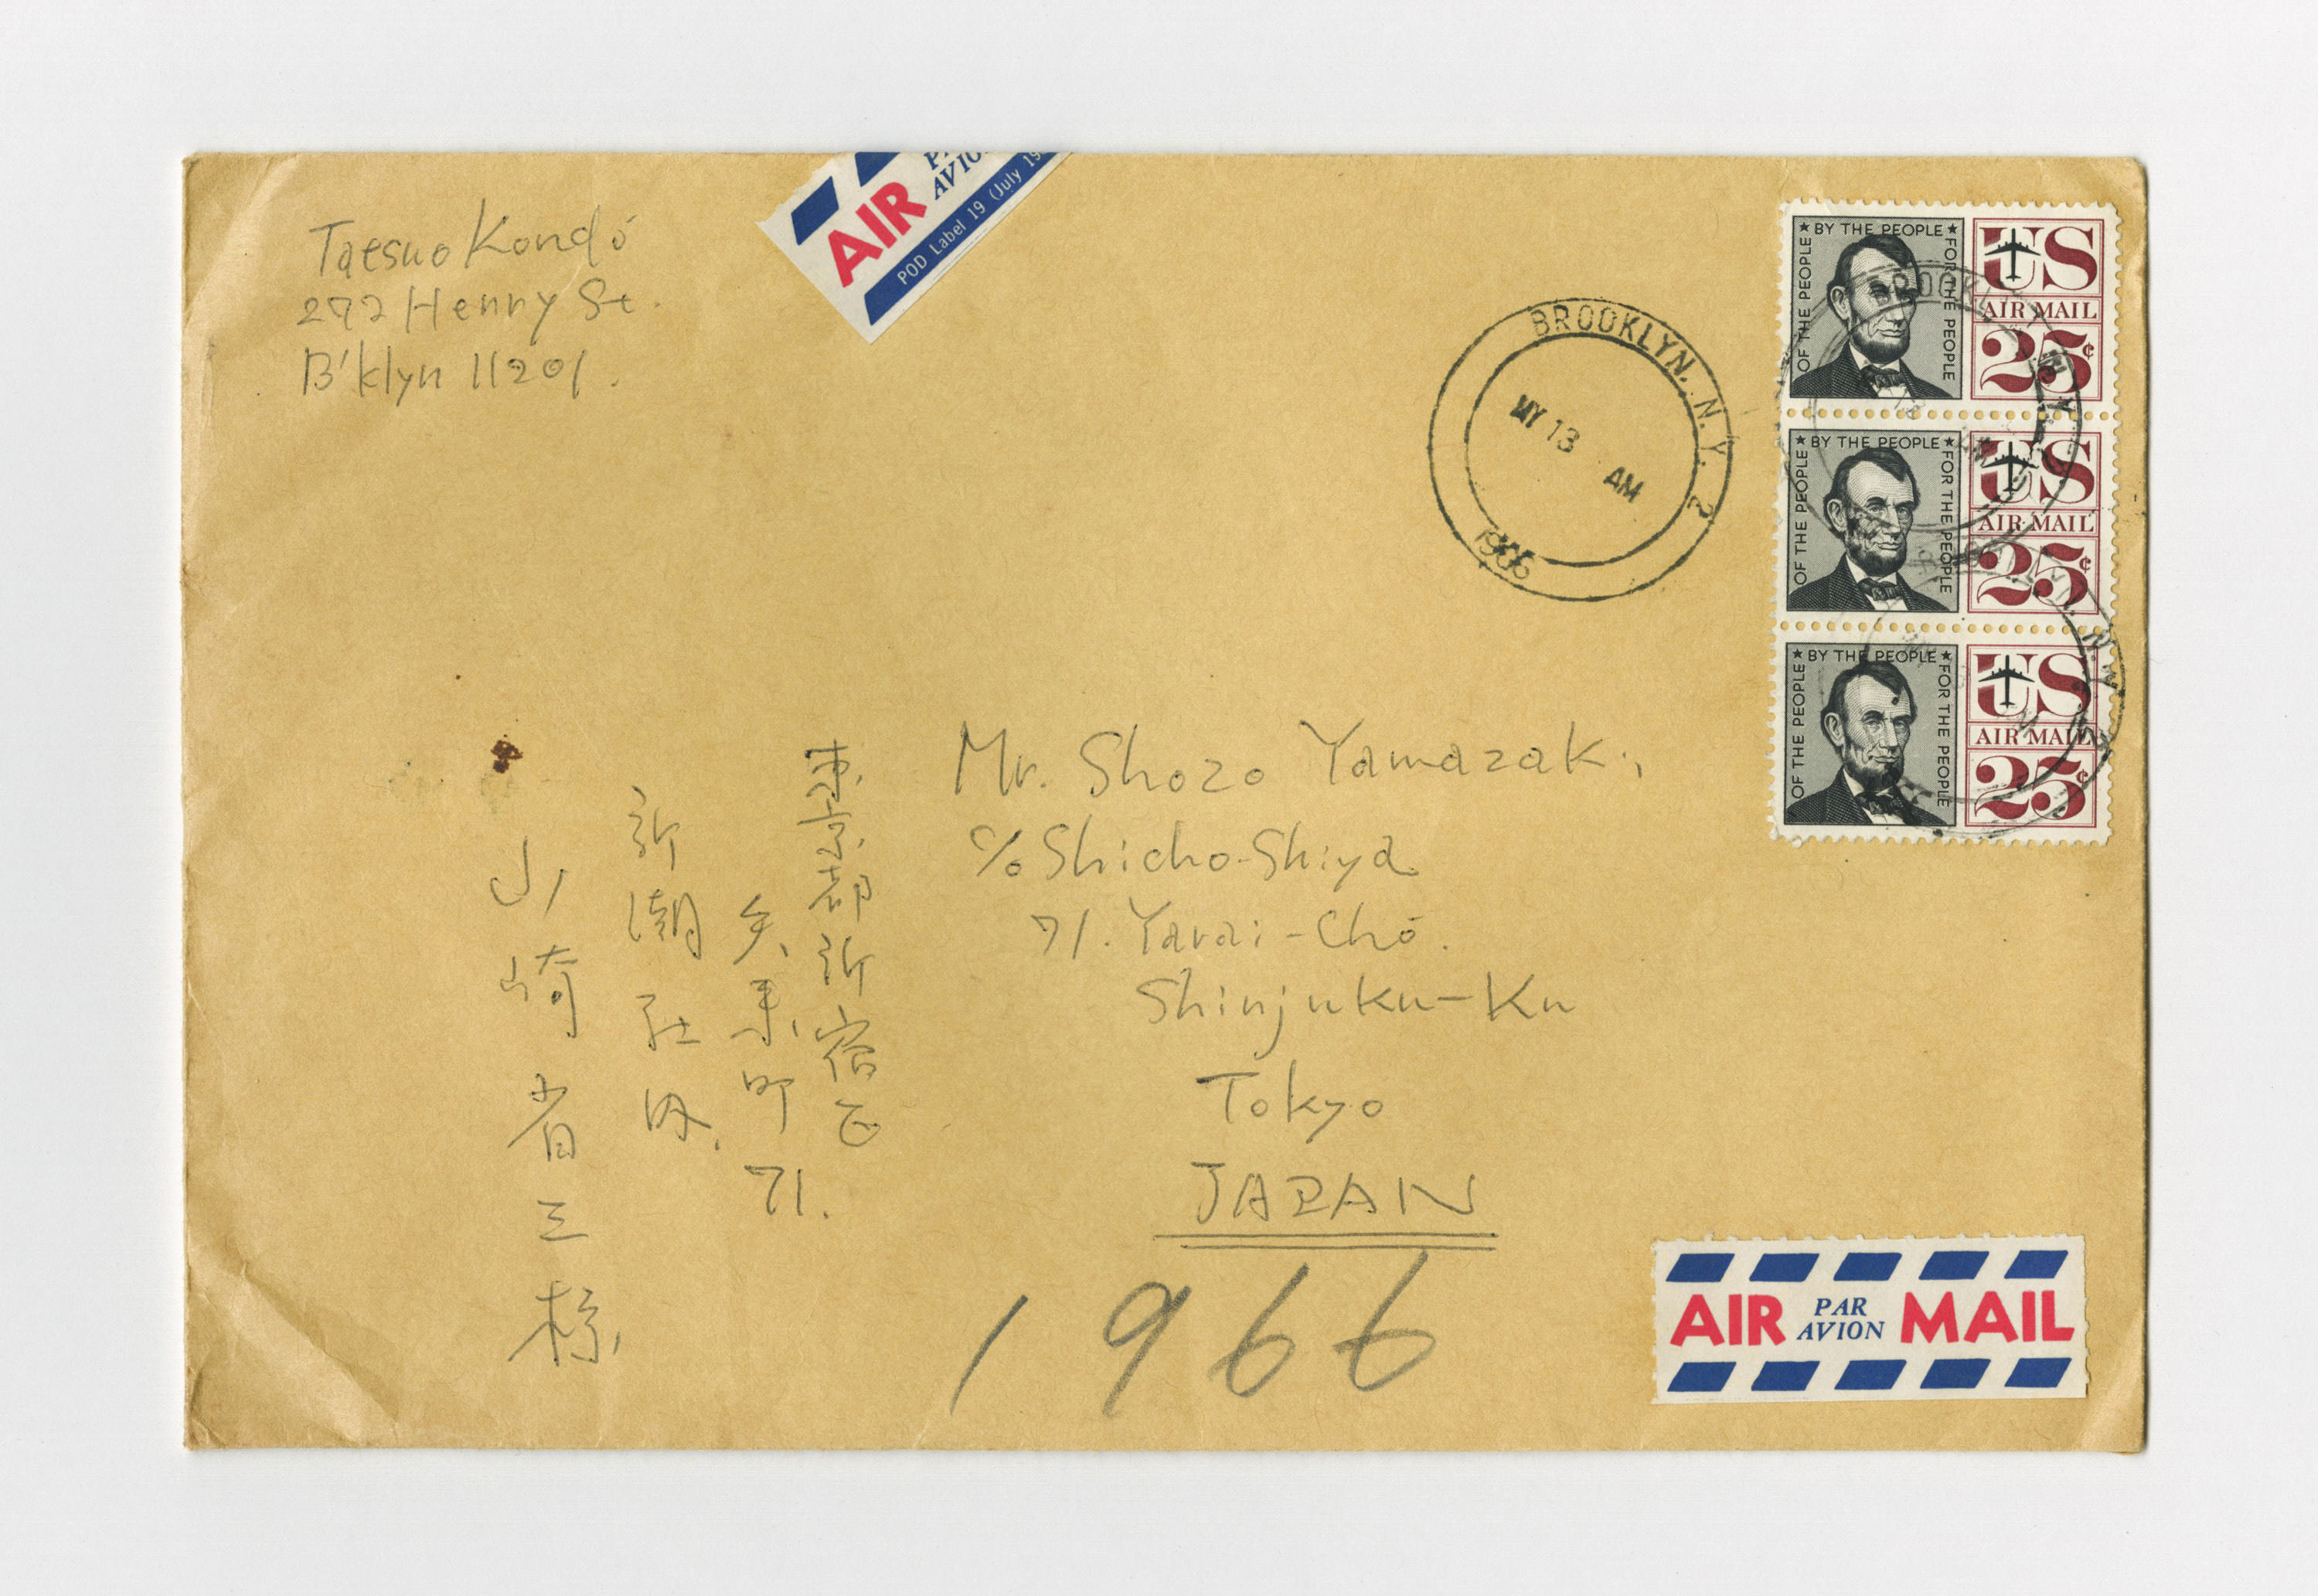 Taesuo Kondō
272 Henry St.
B'klyn 11201.
AIR PAR AVION
POD Label 19 (July 19
BROOKLYN. N.Y. 2
MY 13 AM
1966
OF THE PEOPLE ★ BY THE PEOPLE ★ FOR THE PEOPLE
US
AIR MAIL
25¢
OF THE PEOPLE ★ BY THE PEOPLE ★ FOR THE PEOPLE
US
AIR MAIL
25¢
OF THE PEOPLE ★ BY THE PEOPLE ★ FOR THE PEOPLE
US
AIR MAIL
25¢
Mr. Shozo Yamazaki,
c/o Shicho-Shiya
71. Yarai-Chō.
Shinjuku-Ku
Tokyo
JAPAN
東京都新宿区
矢来町71.
新潮社内.
山崎省三様
1966
AIR PAR AVION MAIL